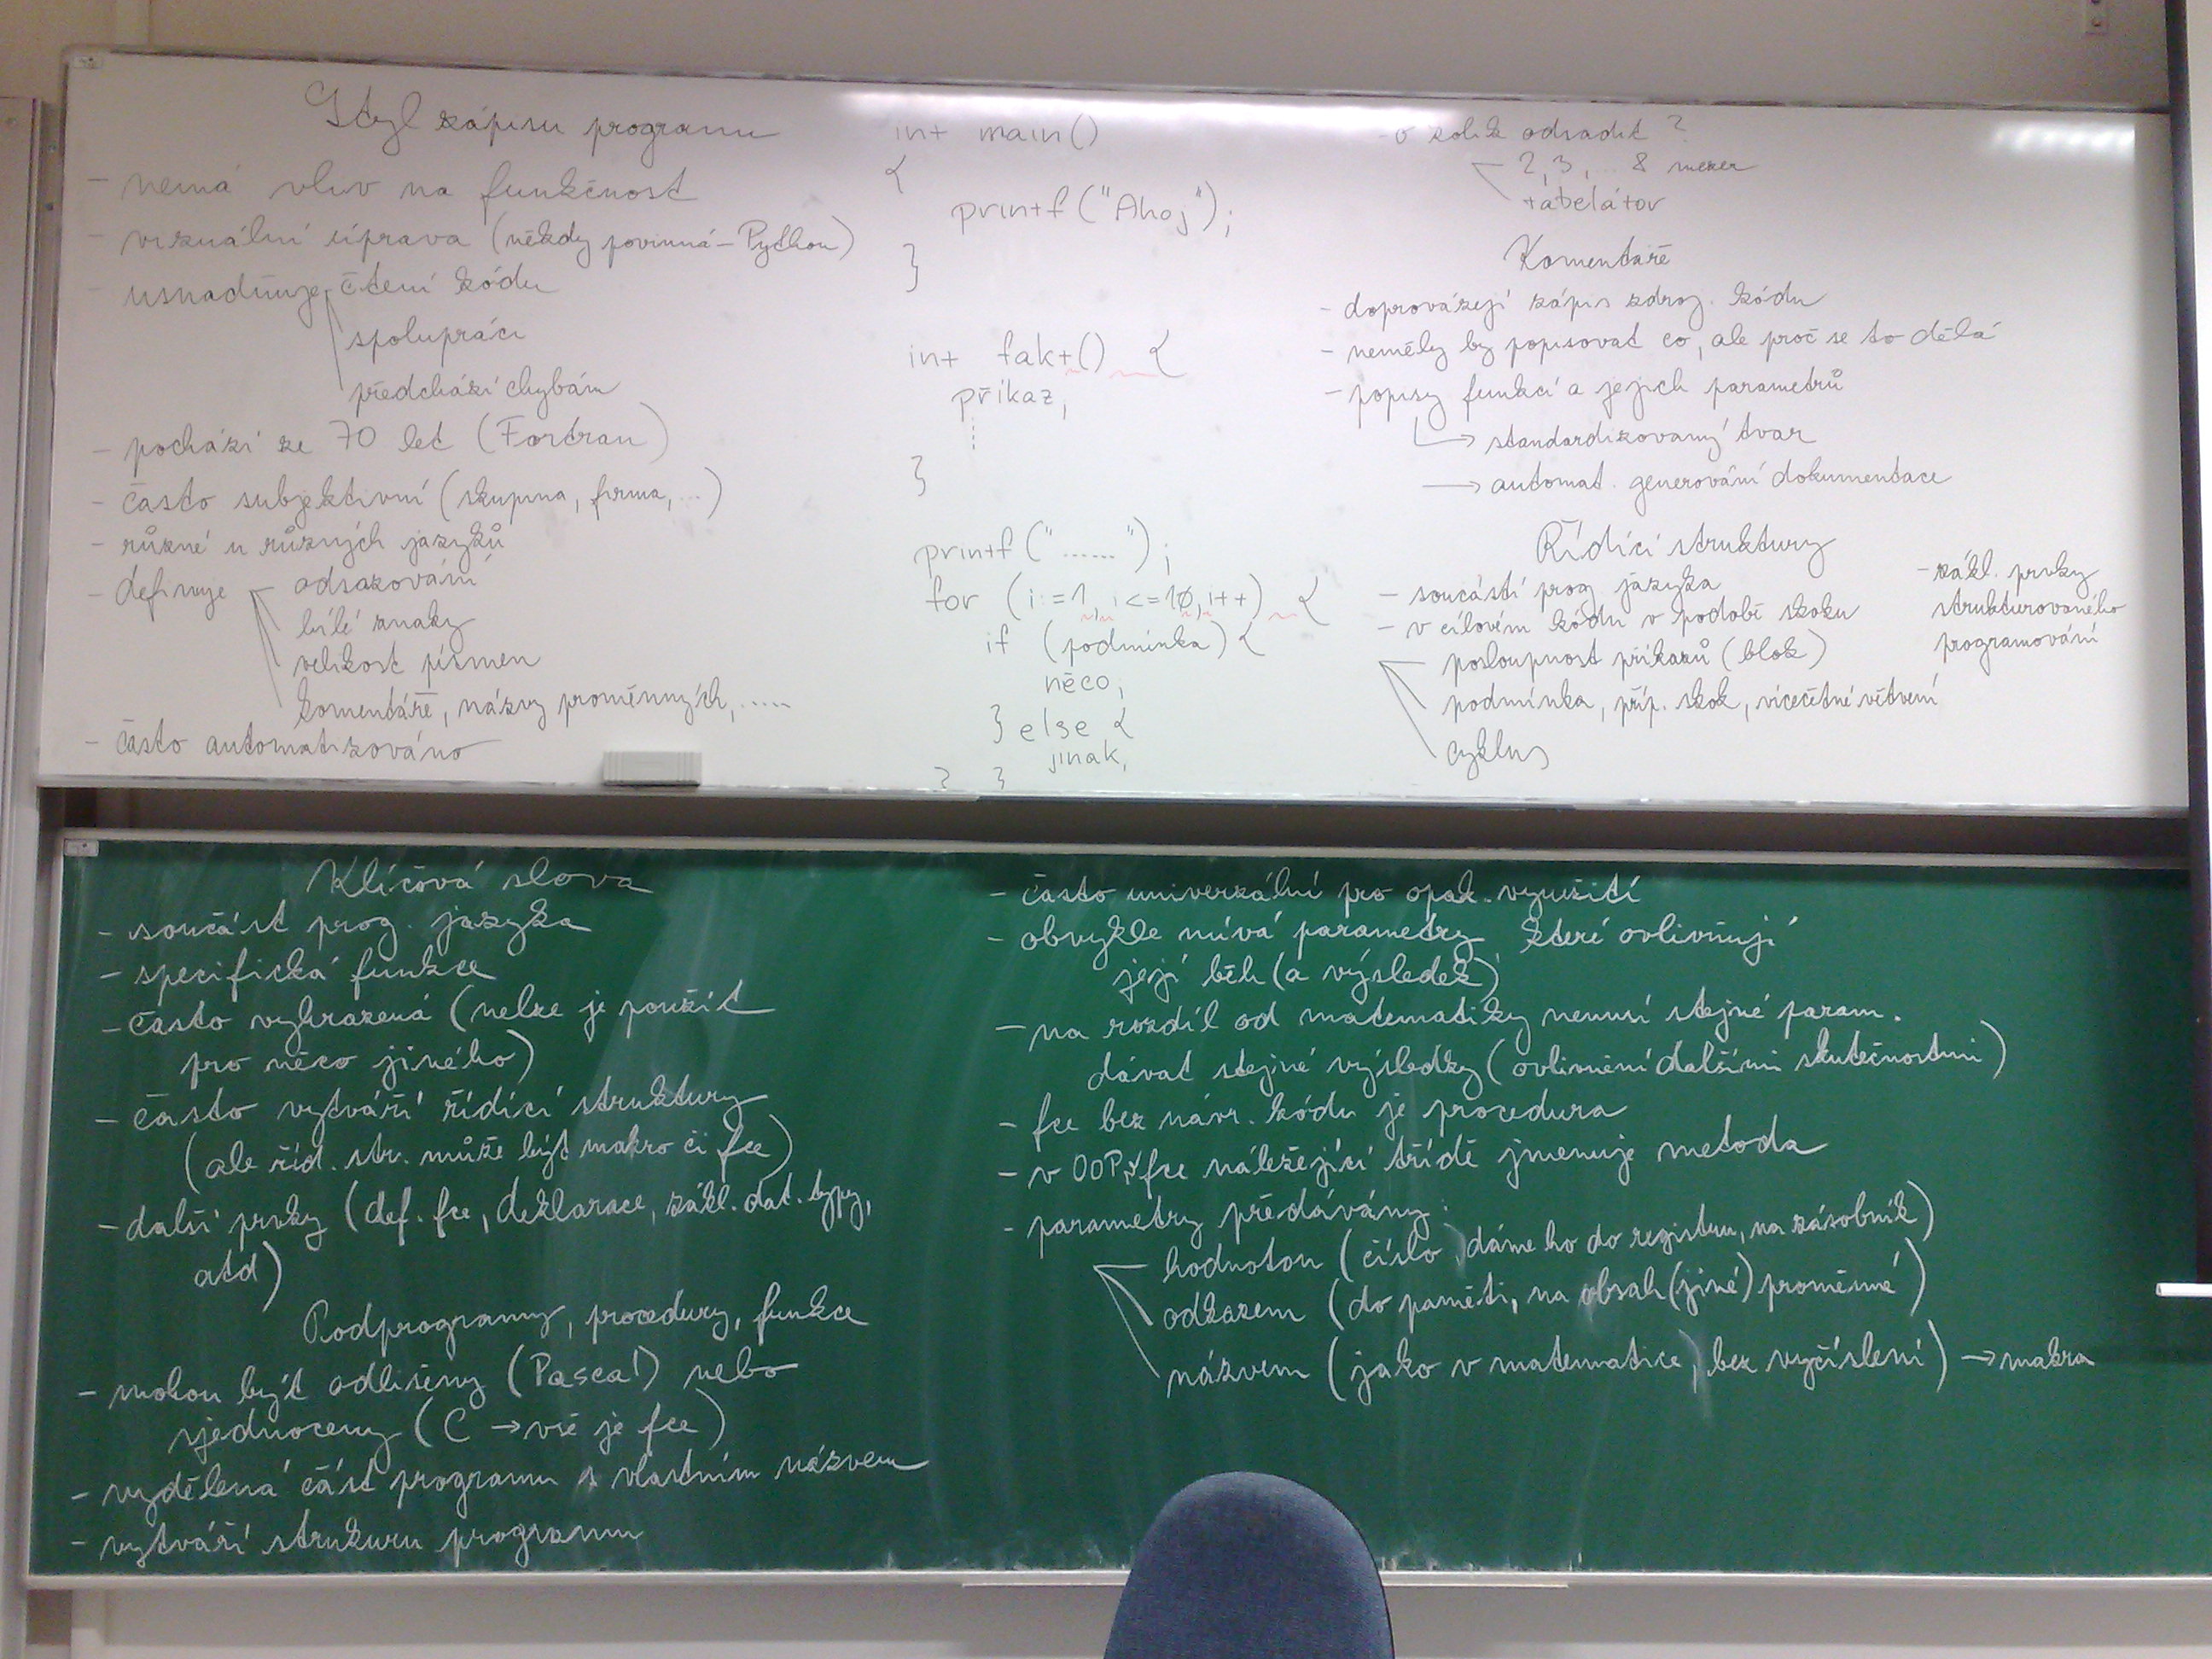 Styl zápisu programu
- nemá vliv na funkčnost
- vizuální úprava (někdy povinná - Python)
- usnadňuje čtení kódu
spolupráci
předchází chybám
- pochází ze 70 let (Fortran)
- často subjektivní (skupina, firma, ...)
- různé u různých jazyků
- definuje odsazování
bílé znaky
velikost písmen
komentáře, názvy proměnných, .....
- často automatizováno
int main()
{
printf("Ahoj");
}
int fakt() {
příkaz;
}
printf("......");
for (i:=1, i<=10, i++) {
if (podmínka) {
něco;
} else {
jinak;
} }
- o kolik odsadit ?
2, 3, ... 8 mezer
tabelátor
Komentáře
- doprovázejí zápis zdroj. kódu
- neměly by popisovat co, ale proč se to dělá
- popisy funkcí a jejich parametrů
→ standardizovaný tvar
→ automat. generování dokumentace
Řídící struktury
- součástí prog jazyka
- v cílovém kódu v podobě skoku
posloupnost příkazů (blok)
podmínka, příp. skok, vícečetné větvení
cyklus
- zákl. prvky
strukturovaného
programování
Klíčová slova
- součást prog. jazyka
- specifická funkce
- často vyhrazená (nelze je použít
pro něco jiného)
- často vytváří řídící struktury
(ale říd. str. může být makro či fce)
- další prvky (def. fce, deklarace, zákl. dat. typy,
atd)
Podprogramy, procedury, funkce
- mohou být odlišeny (Pascal) nebo
sjednoceny (C → vše je fce)
- vydělená část programu s vlastním názvem
- vytváří strukuru programu
- často univerzální pro opak. využití
- obvykle mívá parametry které ovlivňují
její běh (a výsledek)
- na rozdíl od matematiky nemusí stejné param.
dávat stejné výsledky (ovlivnění dalšími skutečnostmi)
- fce bez návr. kódu je procedura
- v OOP fce náležející třídě jmenuje metoda
- parametry předávány:
hodnotou (číslo, dáme ho do registru, na zásobník)
odkazem (do paměti, na obsah (jiné) proměnné)
názvem (jako v matematice, bez vyčíslení) → makra